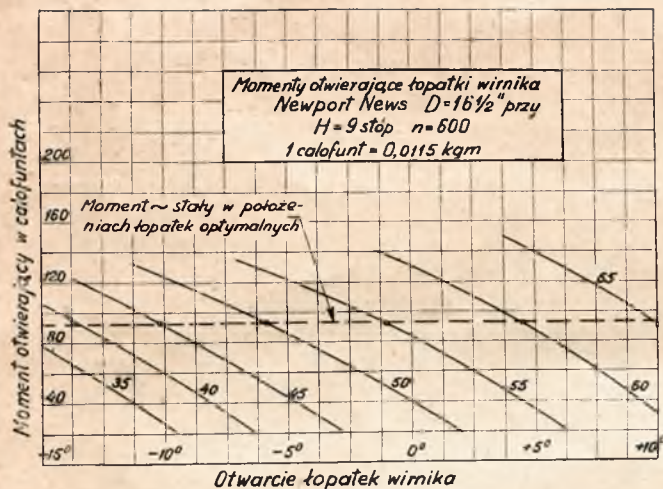 Momenty otwierające łopatki wirnika
Newport News D=16½" przy
H=9 stóp n=600
1 calofunt=0,0115 kgm
Moment ~ stały w położe-
niach łopatek optymalnych
Moment otwierający w calofuntach
200
160
120
80
40
35
40
45
50
55
60
65
+15° -10° -5° 0° +5° +10°
Otwarcie łopatek wirnika